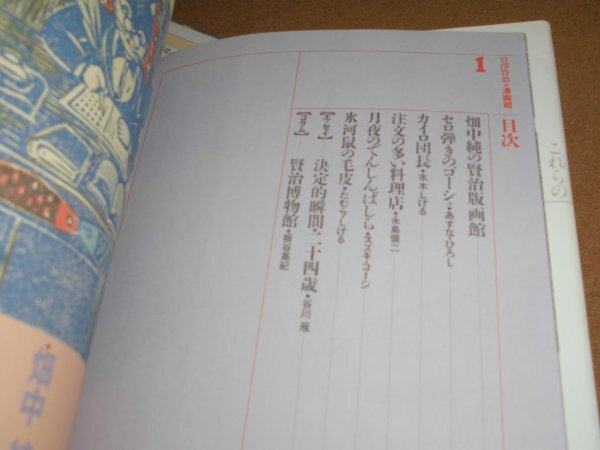 宮澤賢治・漫画館
1
目次
畑中純の賢治版画館
セロ弾きのゴーシュ・あすなひろし
カイロ団長・水木しげる
注文の多い料理店・永島慎二
月夜のでんしんばしら・スズキ・コージ
氷河鼠の毛皮・たむら・しげる
【エッセイ】 決定的瞬間・二十四歳・谷川雁
【コラム】 賢治博物館・板谷英紀
これらの
畑中